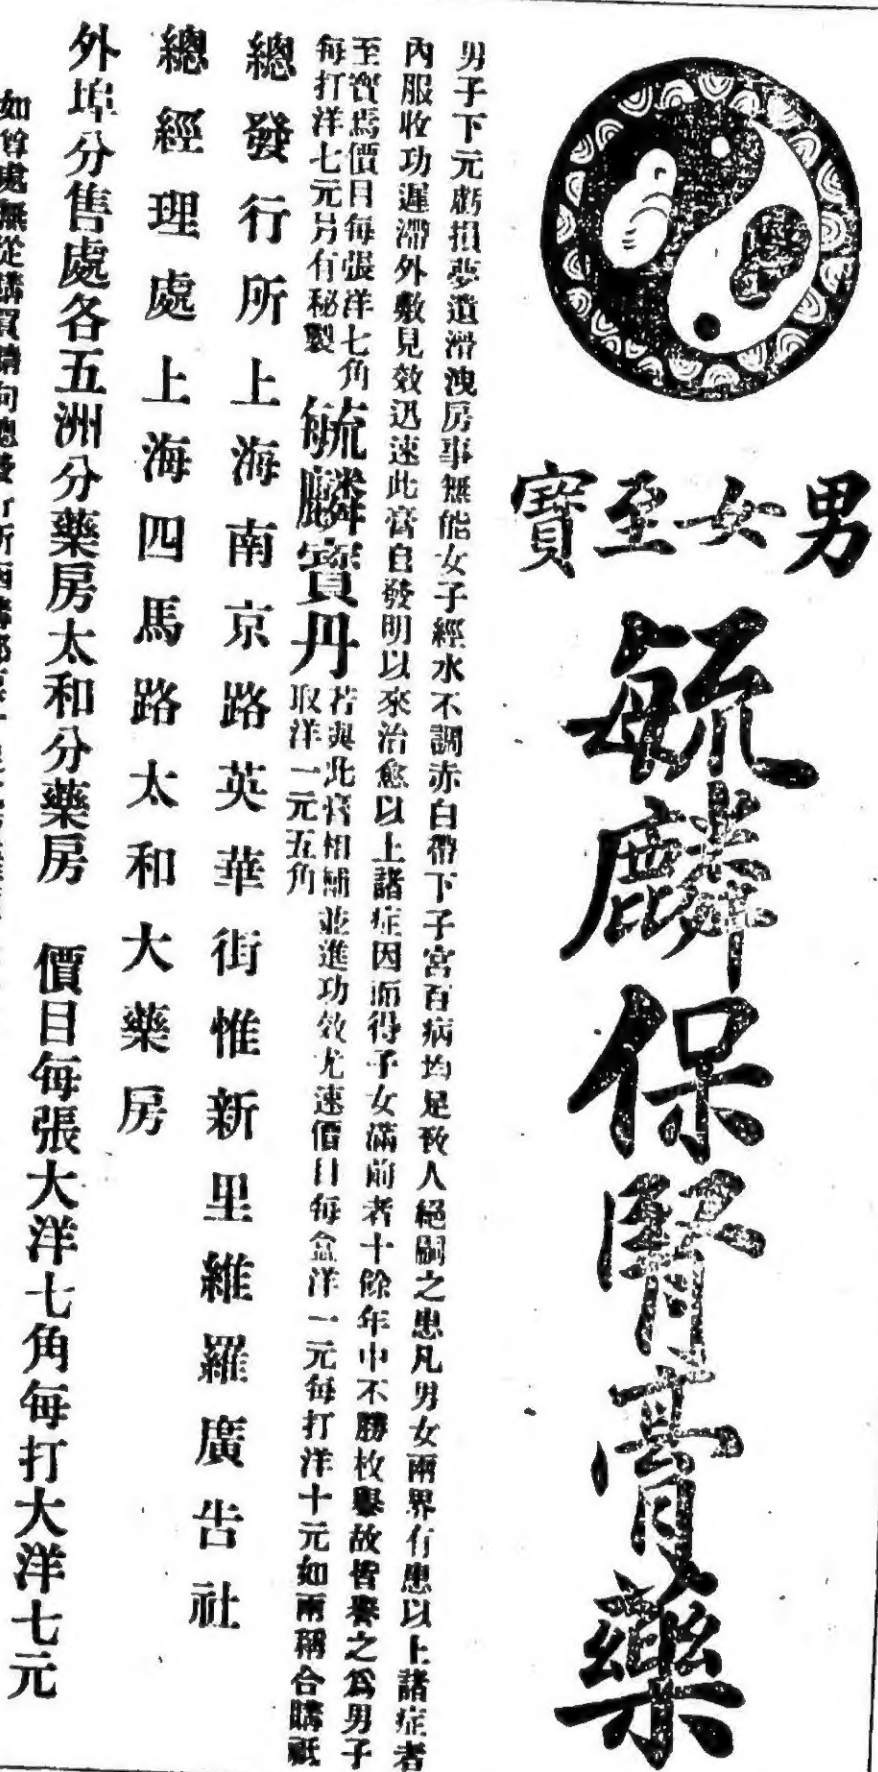 男女至寶
毓麟保腎膏藥
男子下元虧損夢遺滑洩房事無能女子經水不調赤白帶下子宮百病均足致人絕嗣之患凡男女兩界有患以上諸症者
內服收功遲滯外敷見效迅速此膏自發明以來治愈以上諸症因而得子女滿前者十餘年中不勝枚舉故皆譽之為男子
至寶焉價目每張洋七角
每打洋七元另有秘製
毓麟寶丹
若與此膏相輔並進功效尤速價目每盒洋一元每打洋十元如兩種合購祇
取洋一元五角
總發行所上海南京路英華街惟新里維羅廣告社
總經理處上海四馬路太和大藥房
外埠分售處各五洲分藥房太和分藥房 價目每張大洋七角每打大洋七元
如尊處無從購買請向總發行所函購